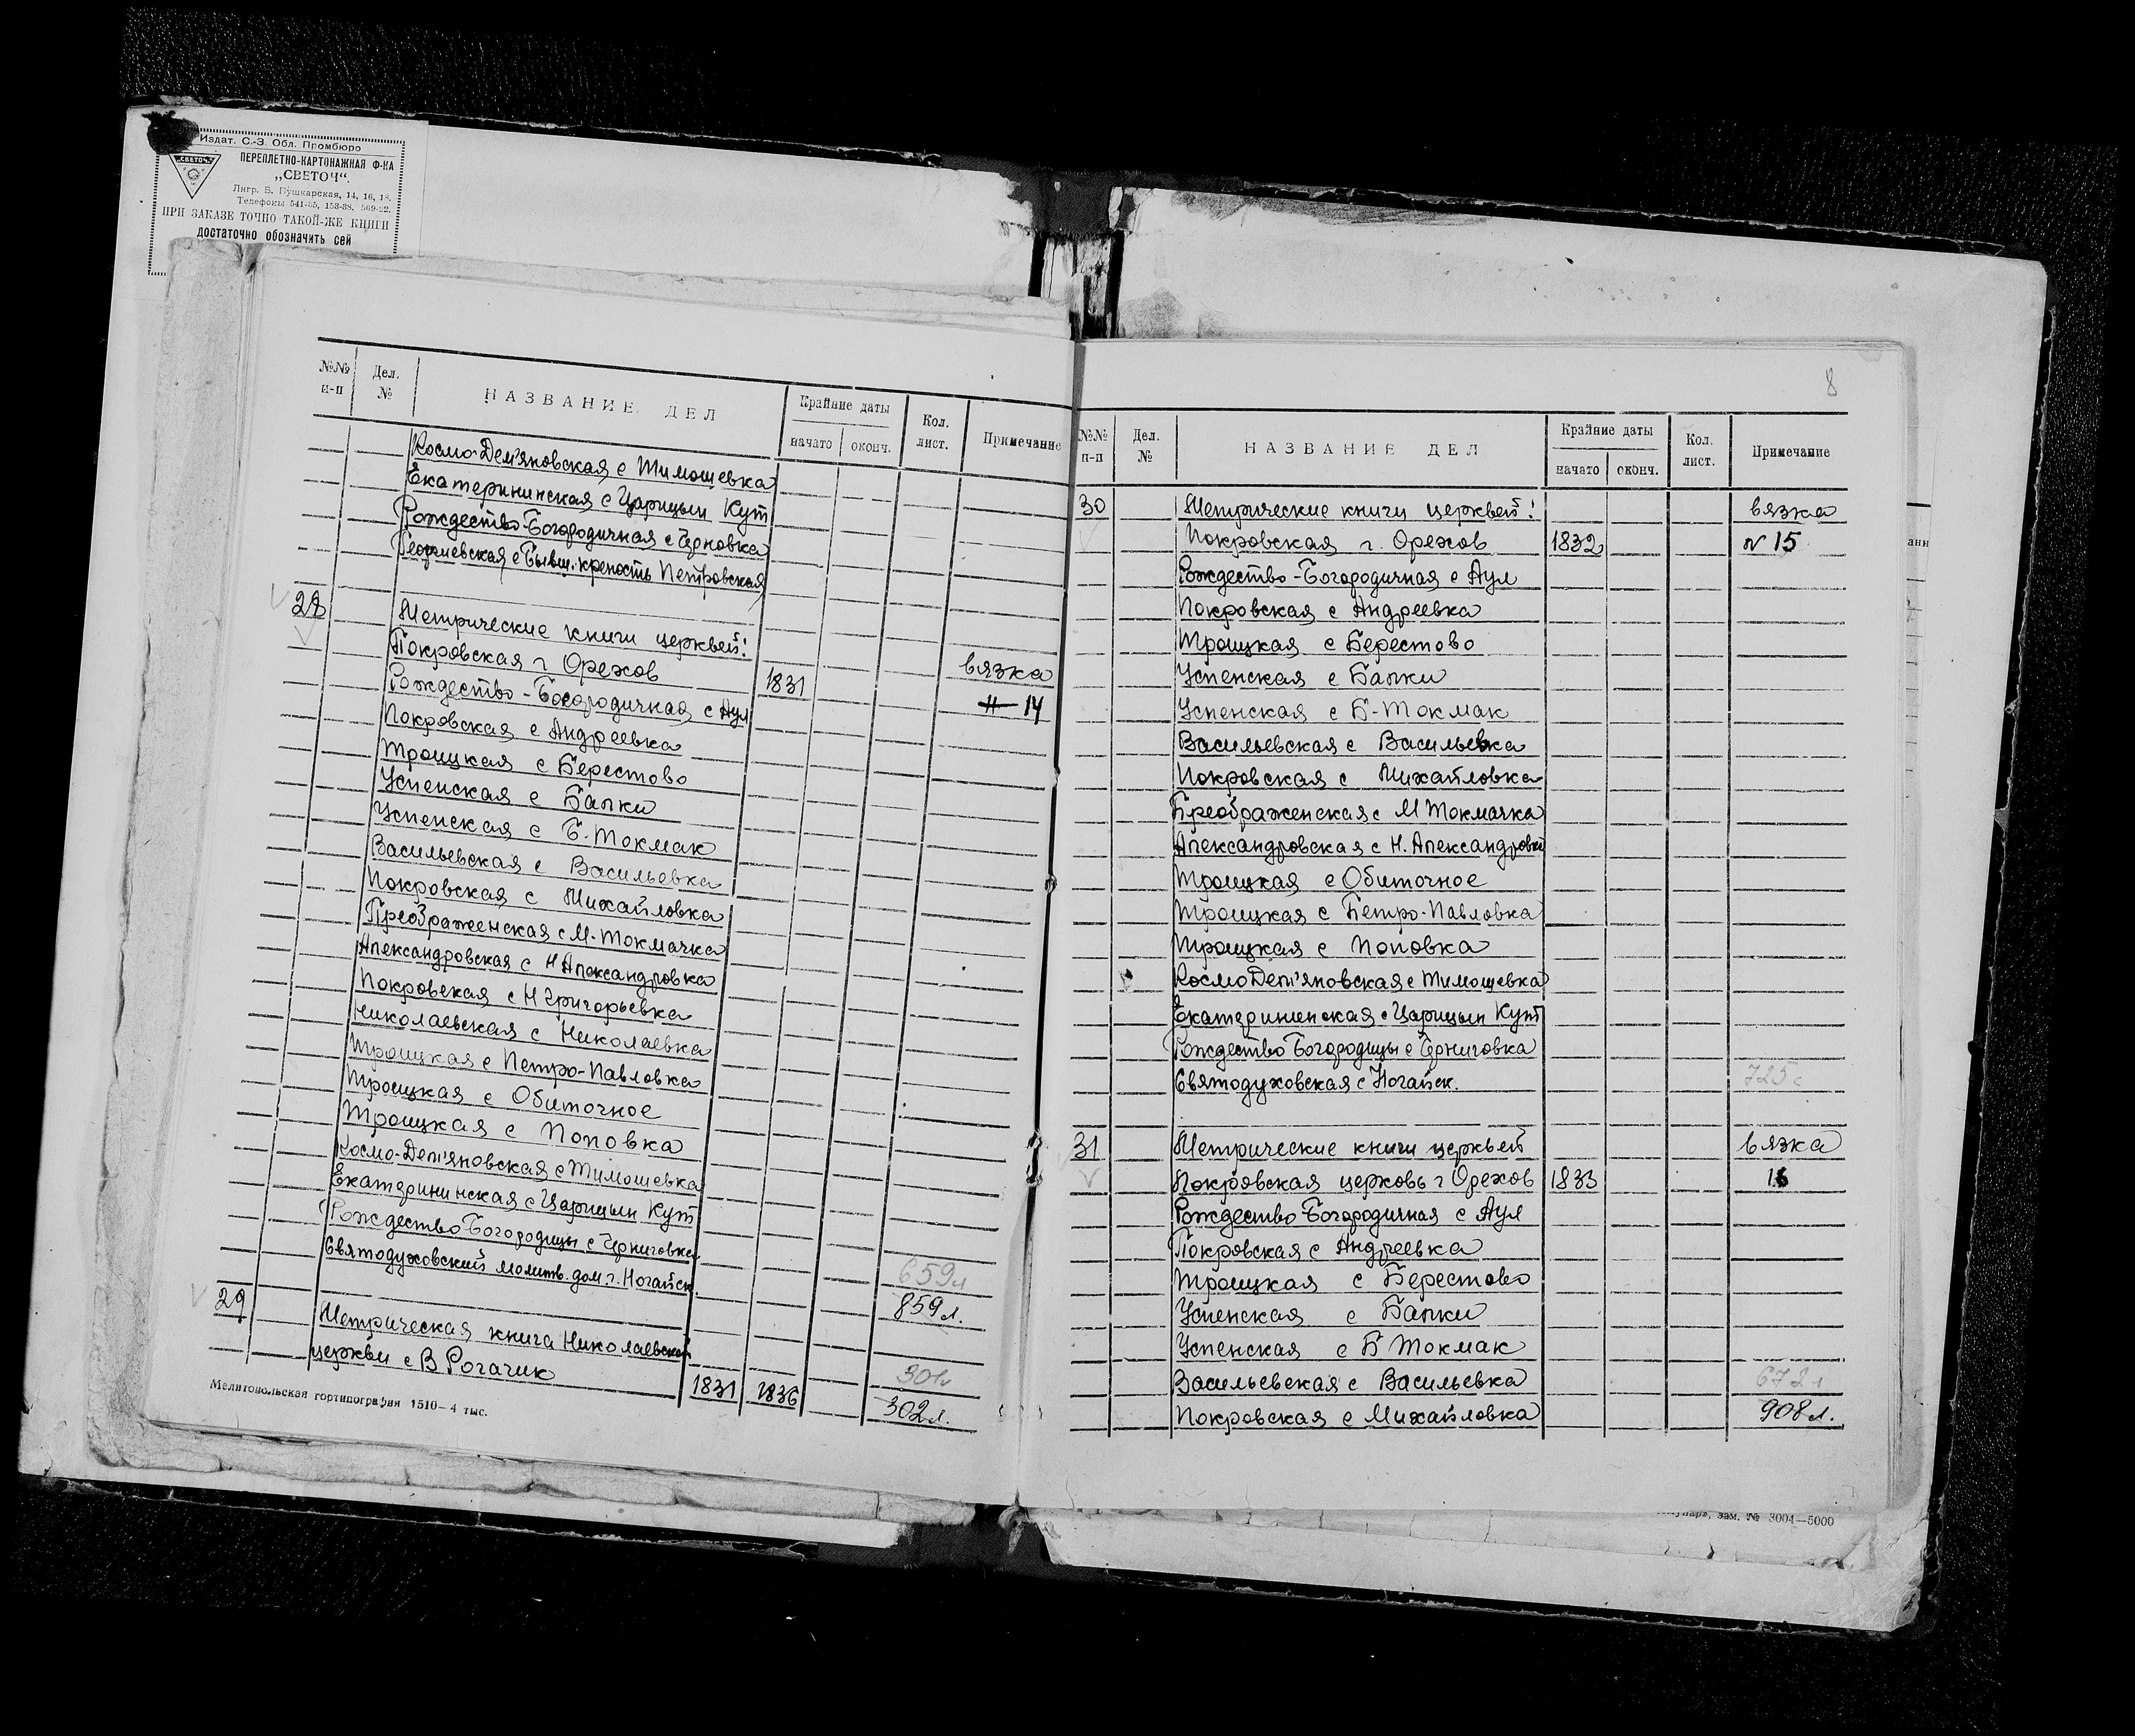 Издат. С.-З. Обл. Промбюро
"СВЕТОЧ"
ПЕРЕПЛЕТНО-КАРТОНАЖНАЯ Ф-КА
„СВЕТОЧ“.
Лнгр. Б. Пушкарская, 14, 16, 18.
Телефоны 541-35, 153-38, 569-22.
ПРИ ЗАКАЗЕ ТОЧНО ТАКОЙ-ЖЕ КНИГИ
достаточно обозначить сей
№№ п-п Дел. № НАЗВАНИЕ ДЕЛ Крайние даты начато оконч. Кол. лист. Примечание
Космо-Дем'яновская с Тимошевка
Екатерининская с Царицын Кут
Рождество-Богородичная с Черновка
Георгиевская с Бывш. крепость Петровская
28 Метрические книги церквей:
Покровская г Орехов 1831 вязка
Рождество-Богородичная с Аул 14
Покровская с Андреевка
Троицкая с Берестово
Успенская с Балки
Успенская с Б. Токмак
Васильевская с Васильевка
Покровская с Михайловка
Преображенская с М. Токмачка
Александровская с Н Александровка
Покровская с Н Григорьевка
Николаевская с Николаевка
Троицкая с Петро-Павловка
Троицкая с Обиточное
Троицкая с Поповка
Космо-Дем'яновская с Тимошевка
Екатерининская с Царицын Кут
Рождество Богородицы с Черниговка
Святодуховский молитв. дом г. Ногайск 659л
859л.
29 Метрическая книга Николаевской
церкви с В Рогачик 1831 1836 302л.
Мелитопольская гортипография 1510—4 тыс.
8
№№ п-п Дел. № НАЗВАНИЕ ДЕЛ Крайние даты начато оконч. Кол. лист. Примечание
30 Метрические книги церквей: вязка
Покровская г. Орехов 1832 N 15
Рождество-Богородичная с Аул
Покровская с Андреевка
Троицкая с Берестово
Успенская с Балки
Успенская с Б-Токмак
Васильевская с Васильевка
Покровская с Михайловка
Преображенская с М Токмачка
Александровская с Н. Александровка
Троицкая с Обиточное
Троицкая с Петро-Павловка
Троицкая с Поповка
Космо Дем'яновская с Тимошевка
Екатерининская с Царицын Кут
Рождество Богородицы с Черниговка
Святодуховская с Ногайск. 725с
31 Метрические книги церквей вязка
Покровская церковь г Орехов 1833 16
Рождество Богородичная с Аул
Покровская с Андреевка
Троицкая с Берестово
Успенская с Балки
Успенская с Б Токмак
Васильевская с Васильевка 672л
Покровская с Михайловка 908л.
зам. № 3004—5000